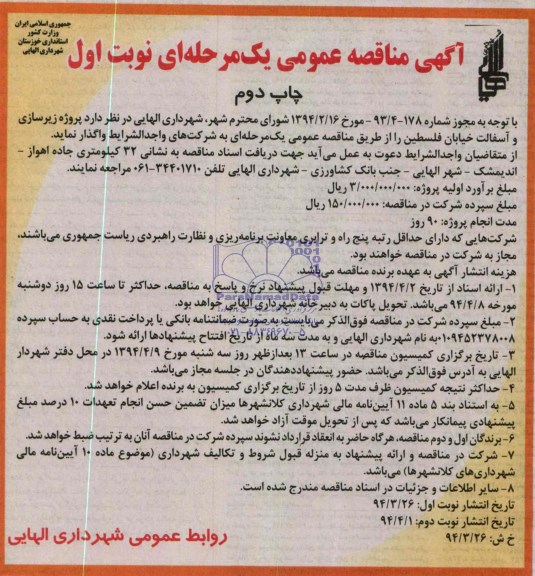 جمهوری اسلامی ایران
وزارت کشور
استانداری خوزستان
شهرداری الهایی
آگهی مناقصه عمومی یک‌مرحله‌ای نوبت اول
چاپ دوم
با توجه به مجوز شماره ۱۷۸-۹۳/۴ - مورخ ۱۳۹۴/۲/۱۶ شورای محترم شهر، شهرداری الهایی در نظر دارد پروژه زیرسازی
و آسفالت خیابان فلسطین را از طریق مناقصه عمومی یک‌مرحله‌ای به شرکت‌های واجدالشرایط واگذار نماید.
از متقاضیان واجدالشرایط دعوت به عمل می‌آید جهت دریافت اسناد مناقصه به نشانی ۳۲ کیلومتری جاده اهواز -
اندیمشک - شهر الهایی - جنب بانک کشاورزی - شهرداری الهایی تلفن ۳۴۴۰۱۷۱۰-۰۶۱ مراجعه نمایند.
مبلغ برآورد اولیه پروژه: ۳/۰۰۰/۰۰۰/۰۰۰ ریال
مبلغ سپرده شرکت در مناقصه: ۱۵۰/۰۰۰/۰۰۰ ریال
مدت انجام پروژه: ۹۰ روز
شرکت‌هایی که دارای حداقل رتبه پنج راه و ترابری معاونت برنامه‌ریزی و نظارت راهبردی ریاست جمهوری می‌باشند،
مجاز به شرکت در مناقصه خواهند بود.
هزینه انتشار آگهی به عهده برنده مناقصه می‌باشد.
۱- ارائه اسناد از تاریخ ۱۳۹۴/۴/۲ و مهلت قبول پیشنهاد نرخ و پاسخ به مناقصه، حداکثر تا ساعت ۱۵ روز دوشنبه
مورخه ۹۴/۴/۸ می‌باشد. تحویل پاکات به دبیرخانه شهرداری الهایی خواهد بود.
۲- مبلغ سپرده شرکت در مناقصه فوق‌الذکر می‌بایست به صورت ضمانتنامه بانکی یا پرداخت نقدی به حساب سپرده
۰۱۰۹۴۵۲۳۷۸۰۰۸ به نام شهرداری الهایی و به مدت سه ماه از تاریخ افتتاح پیشنهادها ارائه شود.
۳- تاریخ برگزاری کمیسیون مناقصه در ساعت ۱۳ بعدازظهر روز سه شنبه مورخ ۱۳۹۴/۴/۹ در محل دفتر شهردار
الهایی به آدرس فوق‌الذکر می‌باشد. حضور پیشنهاددهندگان در جلسه مجاز می‌باشد.
۴- حداکثر نتیجه کمیسیون ظرف مدت ۵ روز از تاریخ برگزاری کمیسیون به برنده اعلام خواهد شد.
۵- به استناد بند ۵ ماده ۱۱ آیین‌نامه مالی شهرداری کلانشهرها میزان تضمین حسن انجام تعهدات ۱۰ درصد مبلغ
پیشنهادی پیمانکار می‌باشد که پس از تحویل موقت آزاد خواهد شد.
۶- برندگان اول و دوم مناقصه، هرگاه حاضر به انعقاد قرارداد نشوند سپرده شرکت در مناقصه آنان به ترتیب ضبط خواهد شد.
۷- شرکت در مناقصه و ارائه پیشنهاد به منزله قبول شروط و تکالیف شهرداری (موضوع ماده ۱۰ آیین‌نامه مالی
شهرداری‌های کلانشهرها) می‌باشد.
۸- سایر اطلاعات و جزئیات در اسناد مناقصه مندرج شده است.
تاریخ انتشار نوبت اول: ۹۴/۳/۲۶
تاریخ انتشار نوبت دوم: ۹۴/۴/۱
خ ش: ۹۴/۳/۲۶
روابط عمومی شهرداری الهایی
ParsNamadData